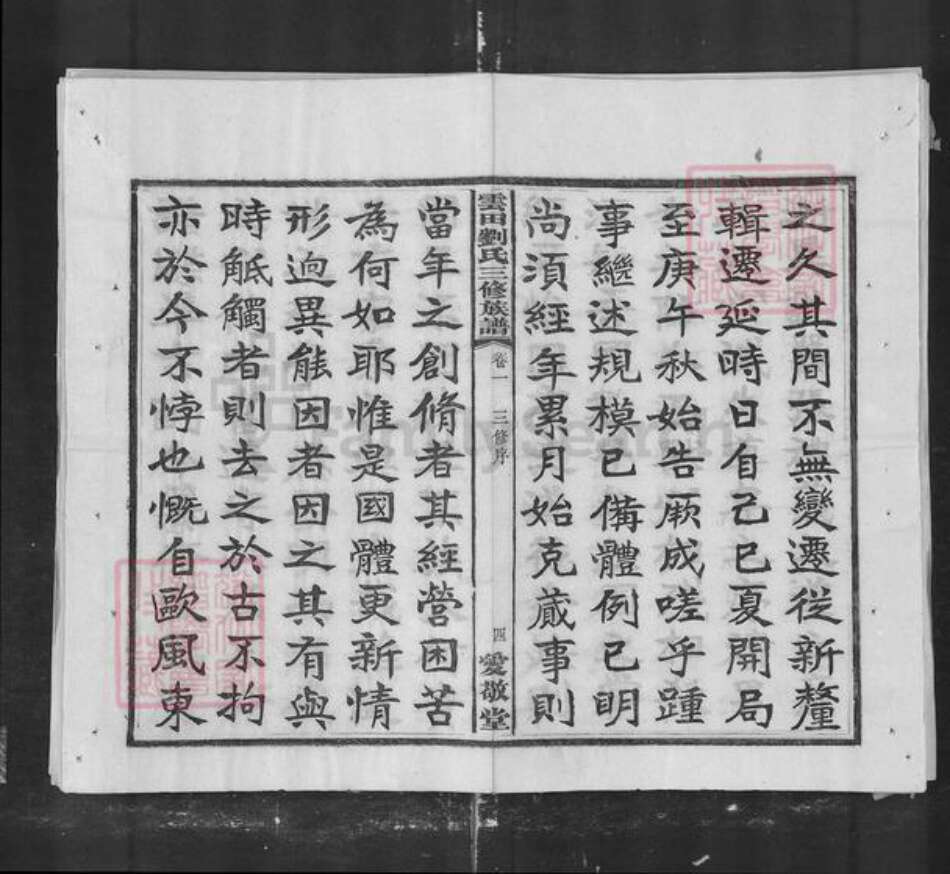 之久其間不無變遷從新釐
輯遷延時日自己巳夏開局
至庚午秋始告厥成嗟乎踵
事繼述規模已備體例已明
尚須經年累月始克蕆事則
雲田劉氏三修族譜 卷一 三修序 四 愛敬堂
當年之創脩者其經營困苦
為何如耶惟是國體更新情
形逈異能因者因之其有與
時觝觸者則去之於古不拘
亦於今不悖也慨自歐風東